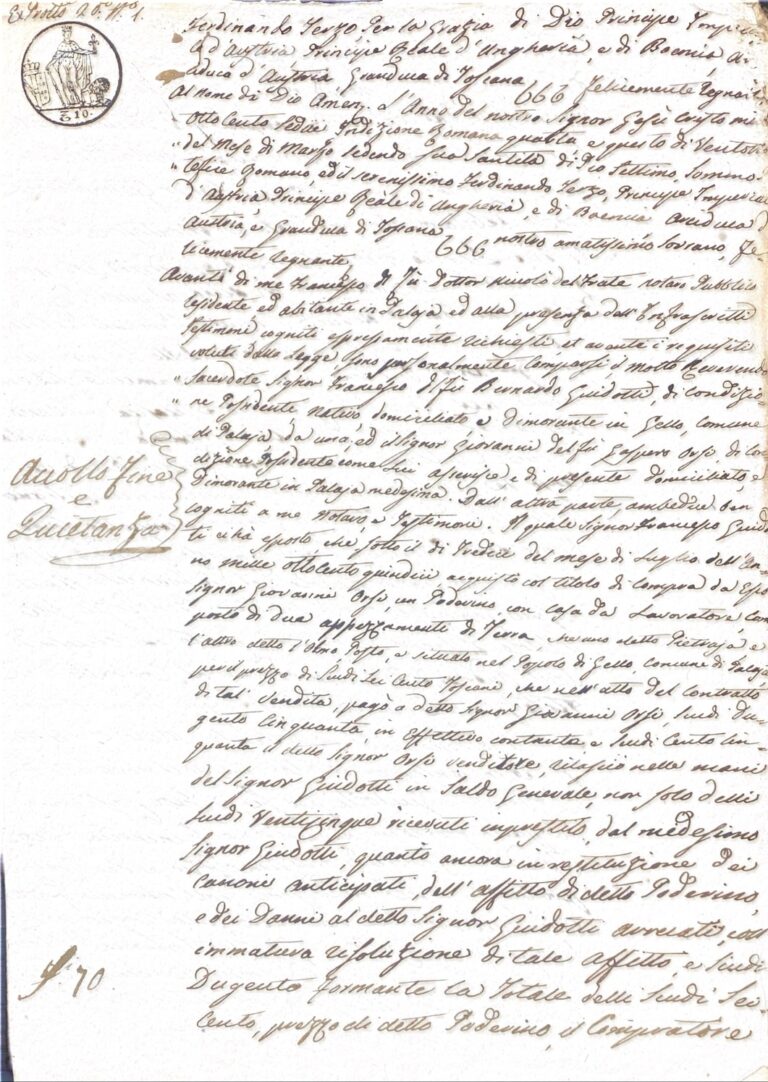 Ferdinando Terzo Per la Grazia di Dio Principe Imper
d'Austria Principe Reale d'Ungheria, e di Boemia Ar
=ciduca d'Austria, Granduca di Toscana
felicemente regnante
Al nome di Dio Amen, L'Anno del nostro Signor Gesù Cristo mi
otto cento sedici Indizione Romana quarta, e questo dì Ventotto
del Mese di Marzo sedendo Sua Santità di Pio Settimo, Sommo
tefice Romano, ed il serenissimo Ferdinando Terzo, Principe Imperial
d'Austria Principe Reale di Ungheria, e di Boemia Arciduca d
Austria, e Granduca di Toscana nostro amatissimo Sovrano, fe=
licemente regnante
Avanti di me Francesco di fù Dottor Niccolò del Frate notaro Pubblico
residente ed abitante in Palaja ed alla presenza dell'Infrascritti
Testimoni cogniti espressamente richiesti et aventi i requisiti
voluti dalla Legge sono personalmente Comparsi il Molto Reverendo
" Sacerdote Signor Francesco di fù Bernardo Guidotti, di condizio=
" ne Possidente nativo domiciliato e dimorante in Gello, comune
di Palaja da una, ed il Signor Giovanni del fù Gaspero Orsi di con
dizione Possidente come Lui asserisce e di presente domiciliato, e
Dimorante in Palaja medesima. Dall'altra parte, ambedue ben
cogniti a me Notaro e Testimoni. Il quale Signor Francesco Guido
ti ci hà esposto che sotto il dì Tredici del mese di Luglio dell'An
no mille otto cento quindici, acquistò col titolo di Compra da Esso
Signor Giovanni Orsi, un Poderino, con casa da Lavoratore, com
posto di due appezzamenti di Terra, che uno detto Pietraja e
l'altro detto l'Olmo Posto, e situato nel Popolo di Gello, comune di Palaja
per il prezzo di Scudi Sei Cento Toscani, che nell'atto del Contratto
di tal' vendita, pagò a detto Signor Giovanni Orsi, Scudi Du=
gento Cinquanta, in effettivo contante e Scudi Cento cin=
quanta il detto Signor Orsi venditore, rilasciò nelle mani
del Signor Guidotti in Saldo Generale, non solo delli
Scudi Venticinque ricevuti imprestito, dal medesimo
Signor Guidotti, quanto ancora in restituzione dei
canoni anticipati, dell'affitto di detto Poderino,
e dei Danni al detto Signor Guidotti arrecati, coll
immatura risoluzione di tale affitto, e Scudi
Dugento formante la Totale delli Scudi Sei
Cento, prezzo di detto Poderino, il Compratore
Accollo fine
e
Quietanza
70
10.